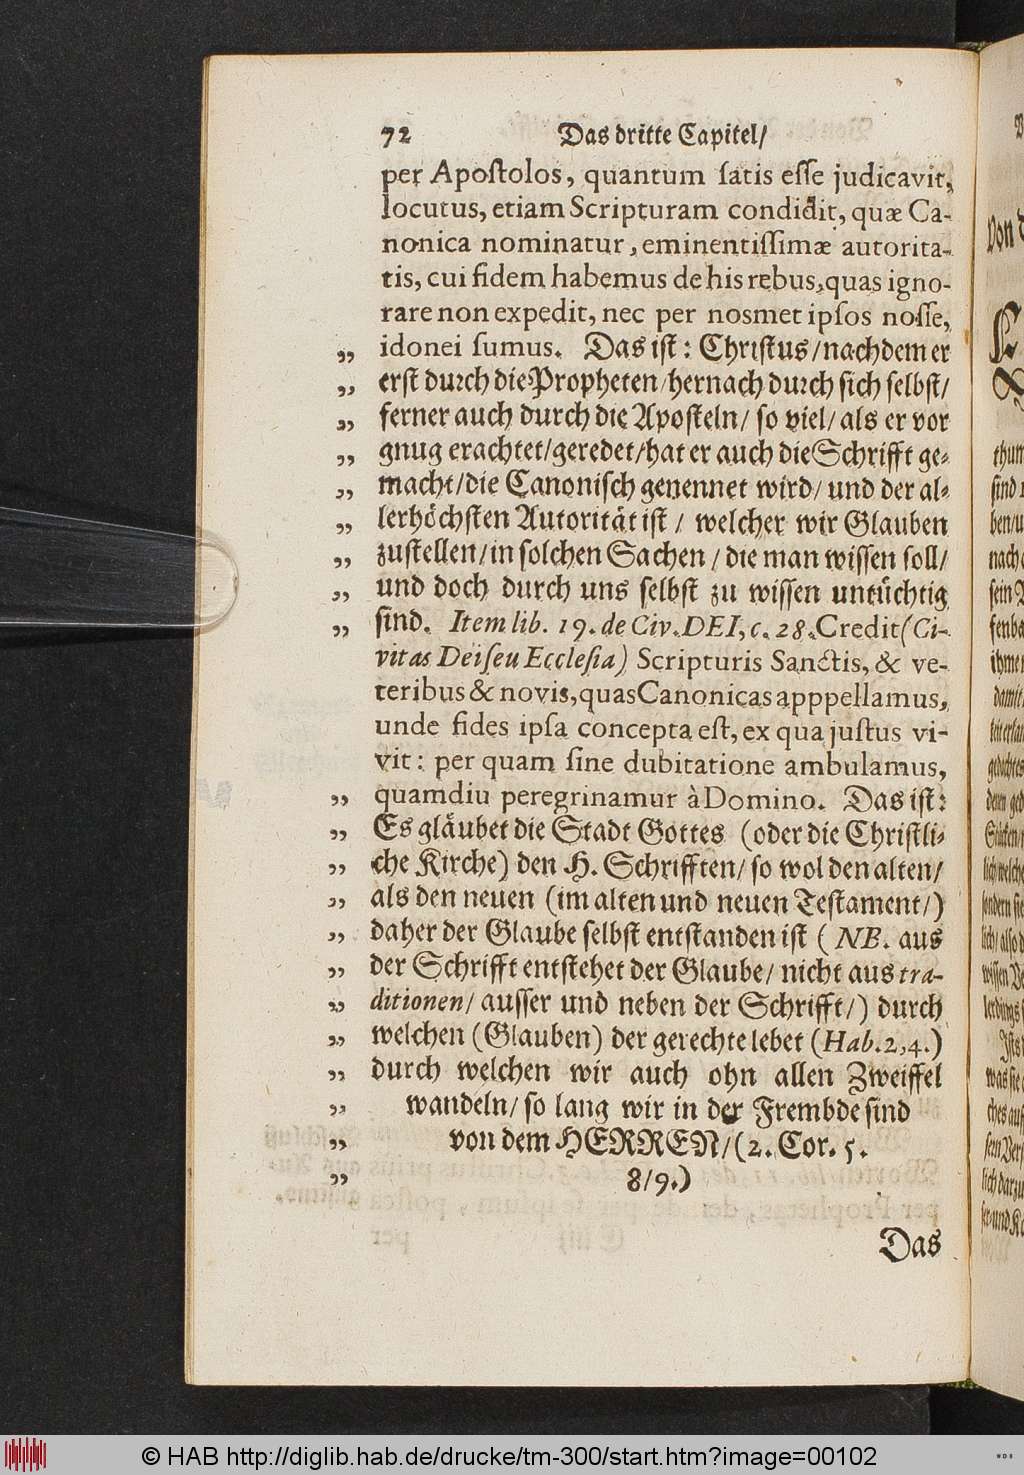 72 Das dritte Capitel/
per Apoſtolos, quantum ſatis eſſe judicavit,
locutus, etiam Scripturam condidit, quæ Ca-
nonica nominatur, eminentiſſimæ autorita-
tis, cui fidem habemus de his rebus, quas igno-
rare non expedit, nec per nosmet ipſos noſſe,
„ idonei ſumus. Das iſt: Chriſtus/ nachdem er
„ erſt durch die Propheten/ hernach durch ſich ſelbſt/
„ ferner auch durch die Apoſteln/ ſo viel/ als er vor
„ gnug erachtet/ geredet/ hat er auch die Schrifft ge-
„ macht/ die Canoniſch genennet wird/ und der al-
„ lerhöchſten Autorität iſt/ welcher wir Glauben
„ zuſtellen/ in ſolchen Sachen/ die man wiſſen ſoll/
„ und doch durch uns ſelbſt zu wiſſen untüchtig
„ ſind. Item lib. 19. de Civ. DEI, c. 28. Credit (Ci-
vitas Dei ſeu Eccleſia) Scripturis Sanctis, & ve-
teribus & novis, quas Canonicas apppellamus,
unde fides ipſa concepta eſt, ex qua juſtus vi-
vit: per quam ſine dubitatione ambulamus,
„ quamdiu peregrinamur à Domino. Das iſt:
„ Es gläubet die Stadt Gottes (oder die Chriſtli-
„ che Kirche) den H. Schrifften/ ſo wol den alten/
„ als den neuen (im alten und neuen Teſtament/)
„ daher der Glaube ſelbſt entſtanden iſt (NB. aus
„ der Schrifft entſtehet der Glaube/ nicht aus tra-
„ ditionen/ auſſer und neben der Schrifft/) durch
„ welchen (Glauben) der gerechte lebet (Hab. 2, 4.)
„ durch welchen wir auch ohn allen Zweiffel
„ wandeln/ ſo lang wir in der Frembde ſind
„ von dem HERREN/ (2. Cor. 5.
„ 8/9.)
Das
© HAB http://diglib.hab.de/drucke/tm-300/start.htm?image=00102